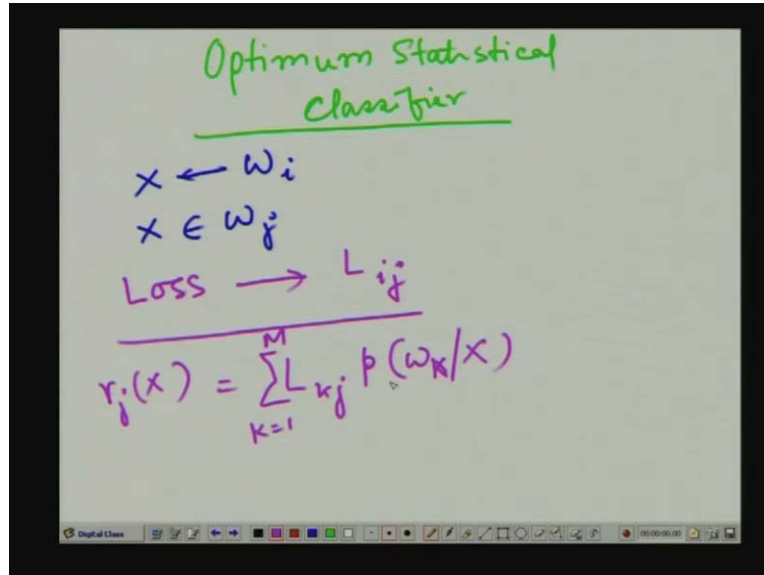 Optimum Statistical
Classifier
X ← ω_i
X ∈ ω_j
Loss → L_ij
r_j(X) = ∑_{K=1}^{M} L_Kj p(ω_K/X)
Digital Class
00:00:00.00